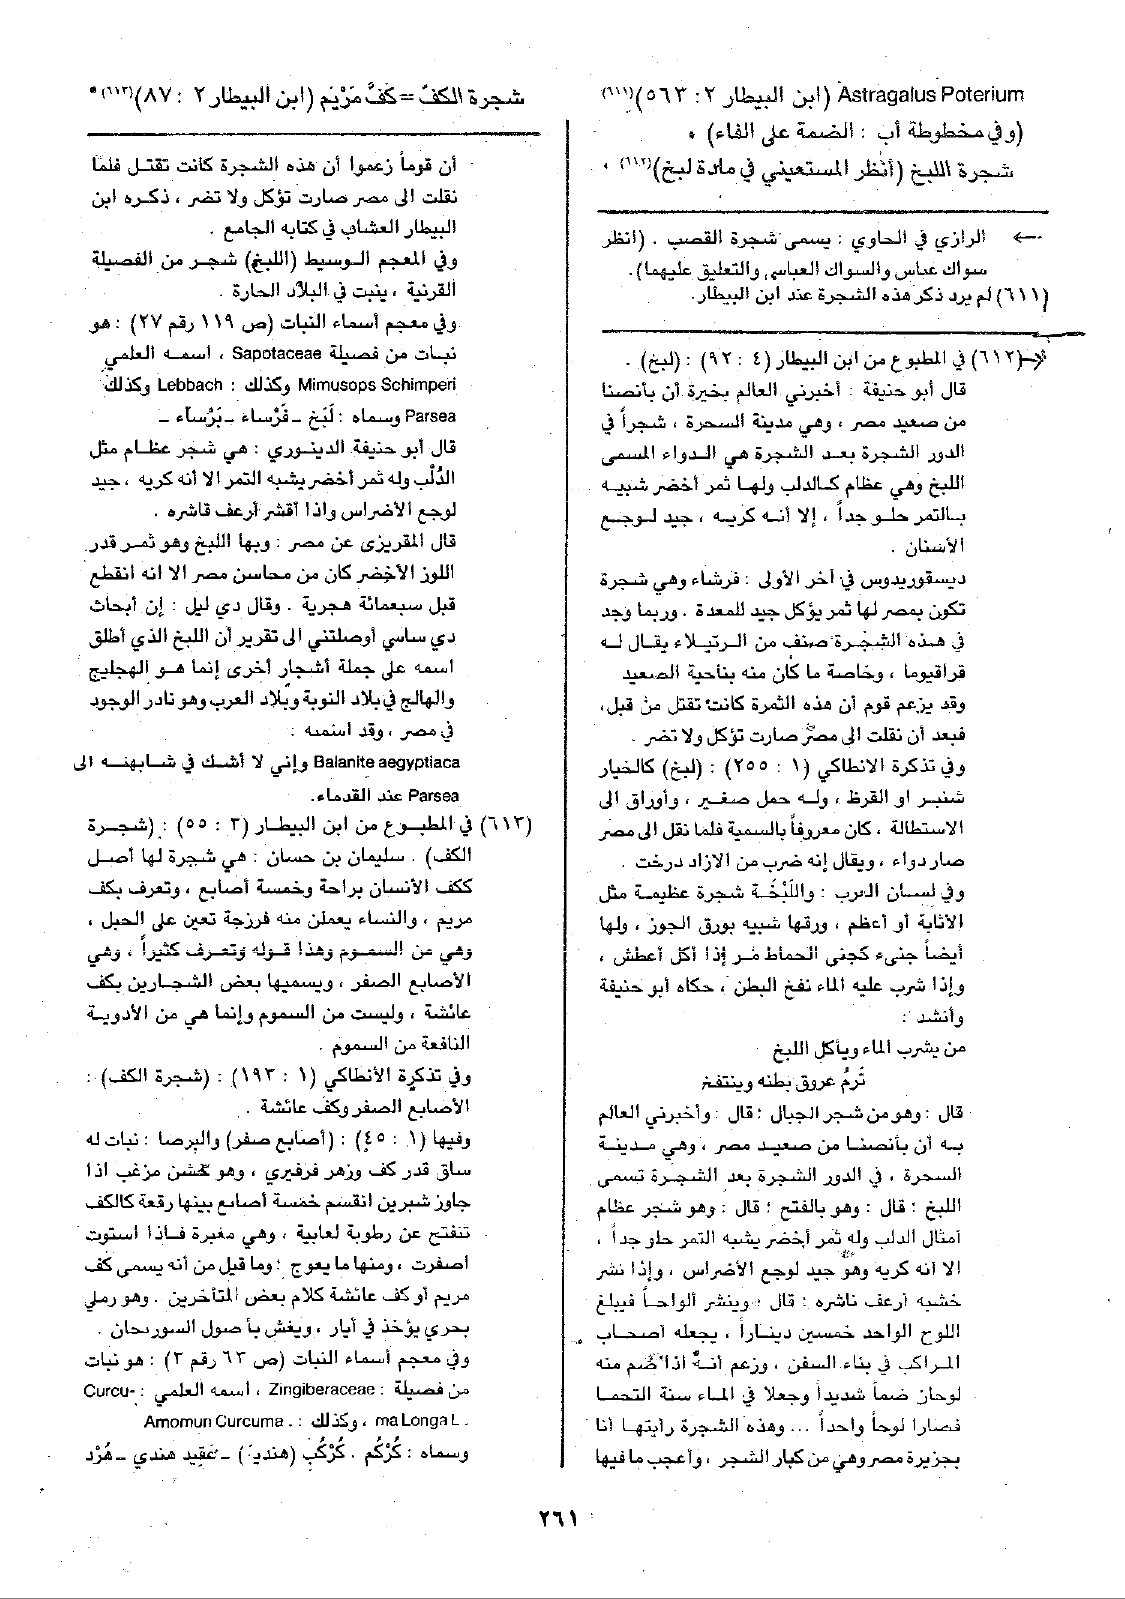 Astragalus Poterium (ابن البيطار ٢: ٥٦٣)(٦١١)
(وفي مخطوطة أب : الضمة على الفاء) *
شجرة اللبخ (أنظر المستعيني في مادة لبخ)(٦١٢) *
←— الرازي في الحاوي : يسمى شجرة القصب . (انظر
سواك عباس والسواك العباسي والتعليق عليهما).
(٦١١) لم يرد ذكر هذه الشجرة عند ابن البيطار.
(٦١٢) في المطبوع من ابن البيطار (٤ : ٩٢) : (لبخ) .
قال أبو حنيفة : أخبرني العالم بخبرة أن بأنصنا
من صعيد مصر ، وهي مدينة السحرة ، شجراً في
الدور الشجرة بعد الشجرة هي الدواء المسمى
اللبخ وهي عظام كالدلب ولها ثمر أخضر شبيه
بالتمر حلو جداً ، إلا أنه كريه ، جيد لوجع
الأسنان .
ديسقوريدوس في آخر الأولى : فرشاء وهي شجرة
تكون بمصر لها ثمر يؤكل جيد للمعدة . وربما وجد
في هذه الشجرة صنف من الرتيلاء يقال له
قراقيوما ، وخاصة ما كان منه بناحية الصعيد
وقد يزعم قوم أن هذه الثمرة كانت تقتل من قبل،
فبعد أن نقلت الى مصر صارت تؤكل ولا تضر .
وفي تذكرة الانطاكي (١ : ٢٥٥) : (لبخ) كالخيار
شنبر او القرظ ، وله حمل صغير ، وأوراق الى
الاستطالة ، كان معروفاً بالسمية فلما نقل الى مصر
صار دواء ، ويقال إنه ضرب من الازاد درخت .
وفي لسان العرب : واللَّبْخَة شجرة عظيمة مثل
الأثابة أو أعظم ، ورقها شبيه بورق الجوز ، ولها
أيضاً جنىء كجنى الحماط مُر إذا أكل أعطش ،
وإذا شرب عليه الماء نفخ البطن ، حكاه أبو حنيفة
وأنشد :
من يشرب الماء ويأكل اللبخ
تَرِمُ عروق بطنه وينتفخ
قال : وهو من شجر الجبال ؛ قال : وأخبرني العالم
به أن بأنصنا من صعيد مصر ، وهي مدينة
السحرة ، في الدور الشجرة بعد الشجرة تسمى
اللبخ ؛ قال : وهو بالفتح ؛ قال : وهو شجر عظام
أمثال الدلب وله ثمر أخضر يشبه التمر حلو جداً ،
الا انه كريه وهو جيد لوجع الأضراس ، وإذا نشر
خشبه أرعف ناشره ؛ قال : وينشر ألواحاً فيبلغ
اللوح الواحد خمسين ديناراً ، يجعله أصحاب
المراكب في بناء السفن ، وزعم أنه اذا ضم منه
لوحان ضماً شديداً وجعلا في الماء سنة التحما
فصارا لوحاً واحداً ... وهذه الشجرة رأيتها أنا
بجزيرة مصر وهي من كبار الشجر ، وأعجب ما فيها
شجرة الكفّ = كَفّ مَرْيَم (ابن البيطار ٢ : ٨٧)(٦١٣) *
أن قوماً زعموا أن هذه الشجرة كانت تقتل فلما
نقلت الى مصر صارت تؤكل ولا تضر ، ذكره ابن
البيطار العشاب في كتابه الجامع .
وفي المعجم الوسيط (اللبخ) شجر من الفصيلة
القرنية ، ينبت في البلاد الحارة .
وفي معجم أسماء النبات (ص ١١٩ رقم ٢٧) : هو
نبات من فصيلة Sapotaceae ، اسمه العلمي
Mimusops Schimperi وكذلك : Lebbach وكذلك
Parsea وسماه : لَبَخ – فَرْساء – بَرْسآء –
قال أبو حنيفة الدينوري : هي شجر عظام مثل
الدُلْب وله ثمر أخضر يشبه التمر الا أنه كريه ، جيد
لوجع الأضراس واذا أقشر أرعف قاشره .
قال المقريزى عن مصر : وبها اللبخ وهو ثمر قدر
اللوز الأخضر كان من محاسن مصر الا انه انقطع
قبل سبعمائة هجرية . وقال دي ليل : إن أبحاث
دي ساسي أوصلتني الى تقرير أن اللبخ الذي أطلق
اسمه على جملة أشجار أخرى إنما هو الهجليج
والهالج في بلاد النوبة وبلاد العرب وهو نادر الوجود
في مصر ، وقد أسميه :
Balanite aegyptiaca وإني لا أشك في شابهنه الى
Parsea عند القدماء.
(٦١٣) في المطبوع من ابن البيطار (٣ : ٥٥) : (شجرة
الكف) . سليمان بن حسان : هي شجرة لها أصل
ككف الأنسان براحة وخمسة أصابع ، وتعرف بكف
مريم ، والنساء يعملن منه فرزجة تعين على الحبل ،
وهي من السموم وهذا قوله وتعرف كثيراً ، وهي
الأصابع الصفر ، ويسميها بعض الشجارين بكف
عائشة ، وليست من السموم وإنما هي من الأدوية
النافعة من السموم .
وفي تذكرة الأنطاكي (١ : ١٩٣) : (شجرة الكف) :
الأصابع الصفر وكف عائشة .
وفيها (١ : ٤٥) : (أصابع صفر) والبرصا : نبات له
ساق قدر كف وزهر فرفيري ، وهو خشن مزغب اذا
جاوز شبرين انقسم خمسة أصابع بينها رقعة كالكف
تنفتح عن رطوبة لعابية ، وهي مغبرة فاذا استوت
اصفرت ، ومنها ما يعوج ؛ وما قيل من أنه يسمى كف
مريم أو كف عائشة كلام بعض المتأخرين . وهو رملي
بحري يؤخذ في أيار ، ويغش بأصول السورنجان .
وفي معجم أسماء النبات (ص ٦٣ رقم ٣) : هو نبات
من فصيلة : Zingiberaceae ، أسمه العلمي : Curcu-
ma Longa L. ، وكذلك : Amomun Curcuma .
وسماه : كُرْكُم . كُرْكُب (هندية) – عَقِيد هندي – هُرْد
٢٦١